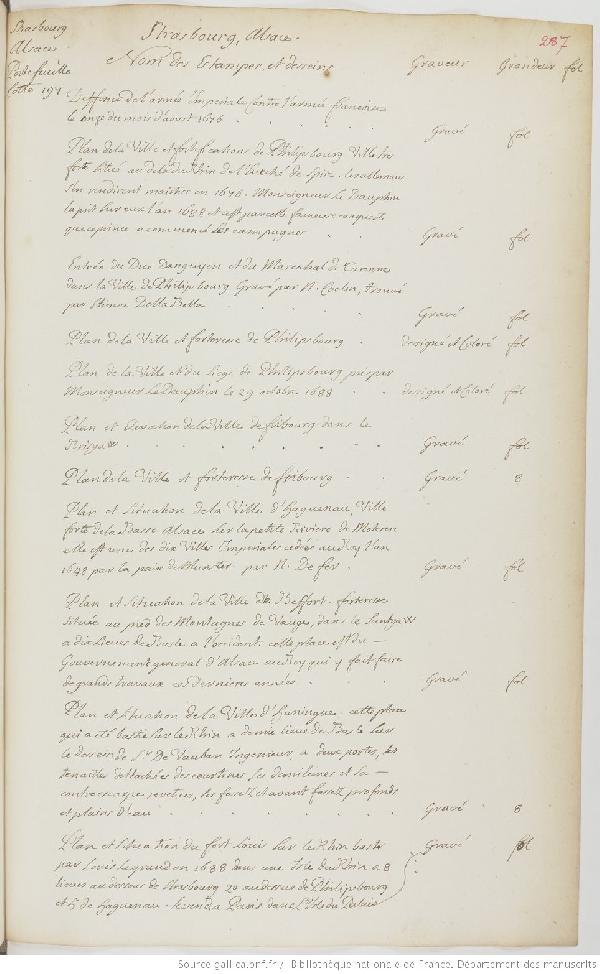 Strasbourg
Alsace
Portefeuille
Cotté 191
Strasbourg, Alsace.
287
Nom des Estampes, et desseins
Graveur
Grandeur
fol
Deffense de l'armée Imperiale contre l'armée francoise
le onze du mois d'aoust 1676
Gravé
fol
Plan de la Ville et fortifications de Philipsbourg Ville tres
forte située au dela du Rhin de l'Evesché de Spire. les allemans
s'en rendirent maistres en 1676. Monseigneur le Dauphin
la prit sur eux l'an 1688 et c'est par cette fameuse conqueste
que ce prince a commencé ses campagnes
Gravé
fol
Entrée du Duc d'anguyen et du Marechal de Turenne
dans la Ville de Philipsbourg Gravé par N. Cochin,
par Stienne Della Bella
Gravé
fol
Plan de la Ville et forteresse de Philipsbourg
designé et Coloré
fol
Plan de la Ville et du Siege de Philipsbourg pris par
Monseigneur le Dauphin le 29 octobre 1688
designé et Coloré
fol
Plan et Elevation de la Ville de fribourg dans le
Brisgaw
Gravé
fol
Plan de la Ville et forteresse de fribourg
Gravé
8
Plan et situation de la Ville d'Haguenau, Ville
forte de la Basse Alsace sur la petite Riviere de Mottern
elle est une des dix Villes Imperiales cedées au Roy l'an
1648 par la paix de Munster par N. De fer.
Gravé
fol
Plan et Situation de la Ville de Beffort forteresse
située au pied des Montagnes de Vauges, dans le Suntgaw
a dix lieues de Basle a l'occident. cette place est du
Gouvernement general d'Alsace au Roy qui y fait faire
de grands travaux ces Dernieres années
Gravé
fol
Plan et situation de la Ville d'Huningue cette place
qui a été bastie sur le Rhin a demie lieue de Basle sur
le dessein de Sr. De Vauban Ingenieur, a deux portes, les
tenailles détachées des courtines ses demilunes et sa
contrescarpe revetües, les fossez et avant fossez profonds
et plains d'eau
Gravé
8
Plan et situation du fort Louis sur le Rhin basti
par Louis le grand en 1688 dans une Isle du Rhin a 8
lieues au dessous de Strasbourg 20 au dessus de Philipsbourg
et 5 de haguenau. se vend a Paris dans l'Isle du Palais
Gravé
fol
Source gallica.bnf.fr / Bibliothèque nationale de France. Département des manuscrits